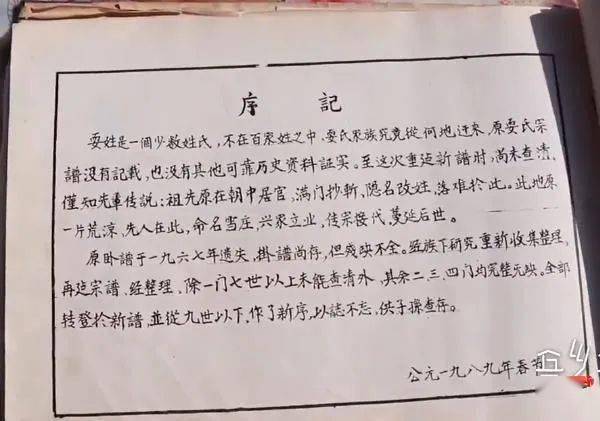 序记
耍姓是一個少数姓氏,不在百家姓之中,耍氏家族究竟從何地迁来,原耍氏宗
譜没有記载,也没有其他可靠历史资料証实。至这次重造新譜时,尚未查清,
僅知先軰传説:祖先原在朝中居官,满门抄斩,隐名改姓,落难於此。此地原
一片荒凉,先人在此,命名当庄,兴家立业,传宗接代,蔓延后世。
原卧譜于一九六七年遗失,掛譜尚存,但残缺不全。经族下研究重新收集整理,
再造宗譜,经整理,除一门七世以上未能查清外,其余二、三、四门均完整无缺。全部
转登於新譜,並從九世以下,作了新序,以誌不忘,供子孫查存。
公元一九八九年春